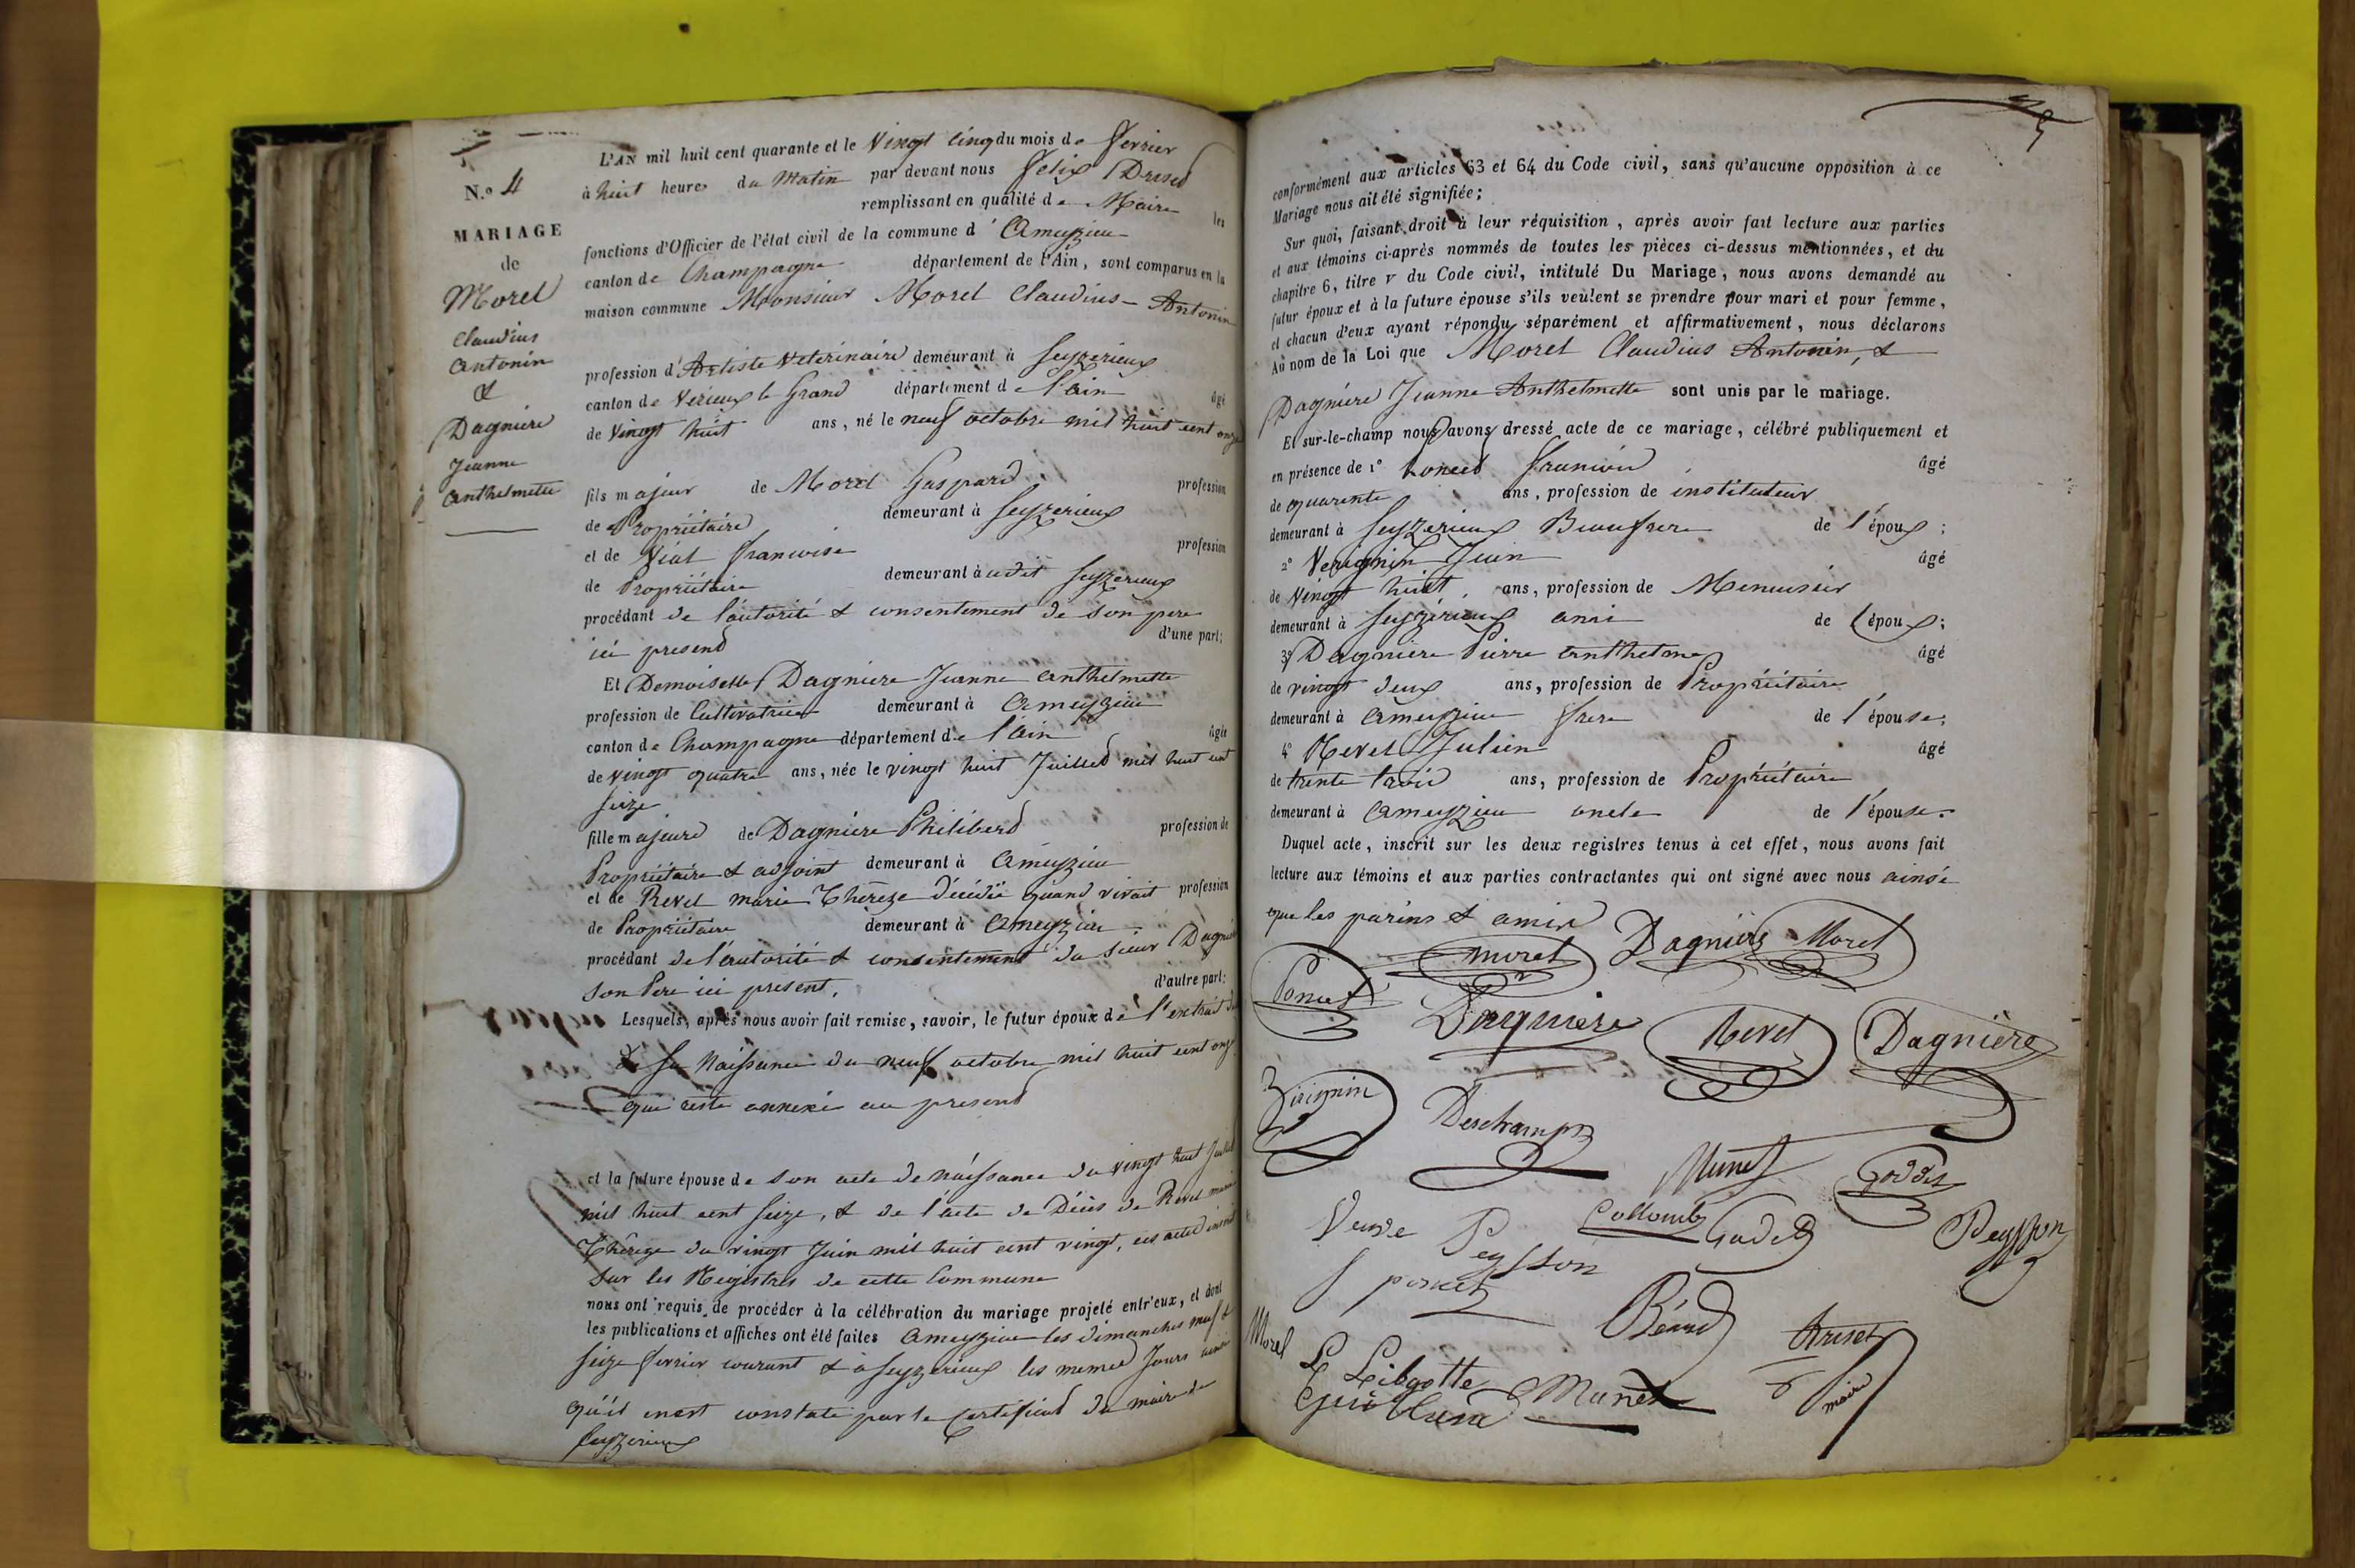 N.º 4
MARIAGE
de
Morel
Claudius
Antonin
&
Dagnière
Jeanne
Anthelmette
L'AN mil huit cent quarante et le Vingt Cinq du mois de fevrier
à huit heures du Matin par devant nous Felix
remplissant en qualité de Maire les
fonctions d'Officier de l'état civil de la commune d'Ameyzieu
canton de Champagne département de l'Ain, sont comparus en la
maison commune Monsieur Morel Claudius-Antonin
profession d'Artiste Veterinaire demeurant à Seyzerieux
canton de Verieux le Grand département de l'ain âgé
de Vingt huit ans, né le neuf octobre mil huit cent onze
fils majeur de Morel Gaspard profession
de Propriétaire demeurant à Seyzerieux
et de Vial francoise profession
de Propriétaire demeurant audit Seyzerieux
procédant de l'autorité & consentement de son pere
ici present d'une part;
Et Demoiselle Dagniere Jeanne Anthelmette
profession de Cultivatrice demeurant à Ameyzieu
canton de Champagne département de l'Ain âgée
de vingt quatre ans, née le vingt huit Juillet mil huit cent
seize
fille majeure de Dagniere Philiberd profession de
Propriétaire & adjoint demeurant à Ameyzieu
et de Revel marie Thèreze décédée quand vivait profession
de Propriétaire demeurant à Ameyzieu
procédant de l'autorité & consentement du sieur Dagnière
son Pere ici present, d'autre part:
Lesquels, après nous avoir fait remise, savoir, le futur époux de l'extrait de
sa Naissance du neuf octobre mil huit cent onze
qui reste annexé au present
et la future épouse de son acte de naissance du vingt huit Juillet
mil huit cent seize, & de l'acte de Décès de Revel marie
Thèreze du vingt Juin mil huit cent vingt, ces actes inscrits
sur les Registres de cette Commune
nous ont requis de procéder à la célébration du mariage projeté entr'eux, et dont
les publications et affiches ont été faites Ameyzieu les dimanches neuf &
seize fevrier courant & à Seyzerieux les memes Jours ainsi
qu'il en est constaté par le Certificat du maire de
Seyzerieux
conformément aux articles 63 et 64 du Code civil, sans qu'aucune opposition à ce
Mariage nous ait été signifiée;
Sur quoi, faisant droit à leur réquisition, après avoir fait lecture aux parties
et aux témoins ci-après nommés de toutes les pièces ci-dessus mentionnées, et du
chapitre 6, titre v du Code civil, intitulé Du Mariage, nous avons demandé au
futur époux et à la future épouse s'ils veulent se prendre pour mari et pour femme,
et chacun d'eux ayant répondu séparément et affirmativement, nous déclarons
Au nom de la Loi que Morel Claudius Antonin, &
Dagniére Jeanne Anthelmette sont unis par le mariage.
Et sur-le-champ nous avons dressé acte de ce mariage, célébré publiquement et
en présence de 1º Poncet francois âgé
de quarente ans, profession de instituteur
demeurant à Seyzerieux Beaufrere de l'époux;
2º Verignin Juin âgé
de Vingt huit ans, profession de Menuisier
demeurant à Seyzérieux ami de l'époux;
3º Dagniere Pierre Anthelme âgé
de vingt deux ans, profession de Propriétaire
demeurant à Ameyzieu frere de l'épouse;
4º Revel Julien âgé
de trente trois ans, profession de Propriétaire
demeurant à Ameyzieu oncle de l'épouse.
Duquel acte, inscrit sur les deux registres tenus à cet effet, nous avons fait
lecture aux témoins et aux parties contractantes qui ont signé avec nous ainsi
que les parens & amis
morel Dagnière Morel
Poncet Dagniere Revel Dagnière
Virignin Deschamps
Munet Goddet
Veuve Peysson Collomb Godet Peysson
poncet
Morel Béard
L Libgotte Munet maire